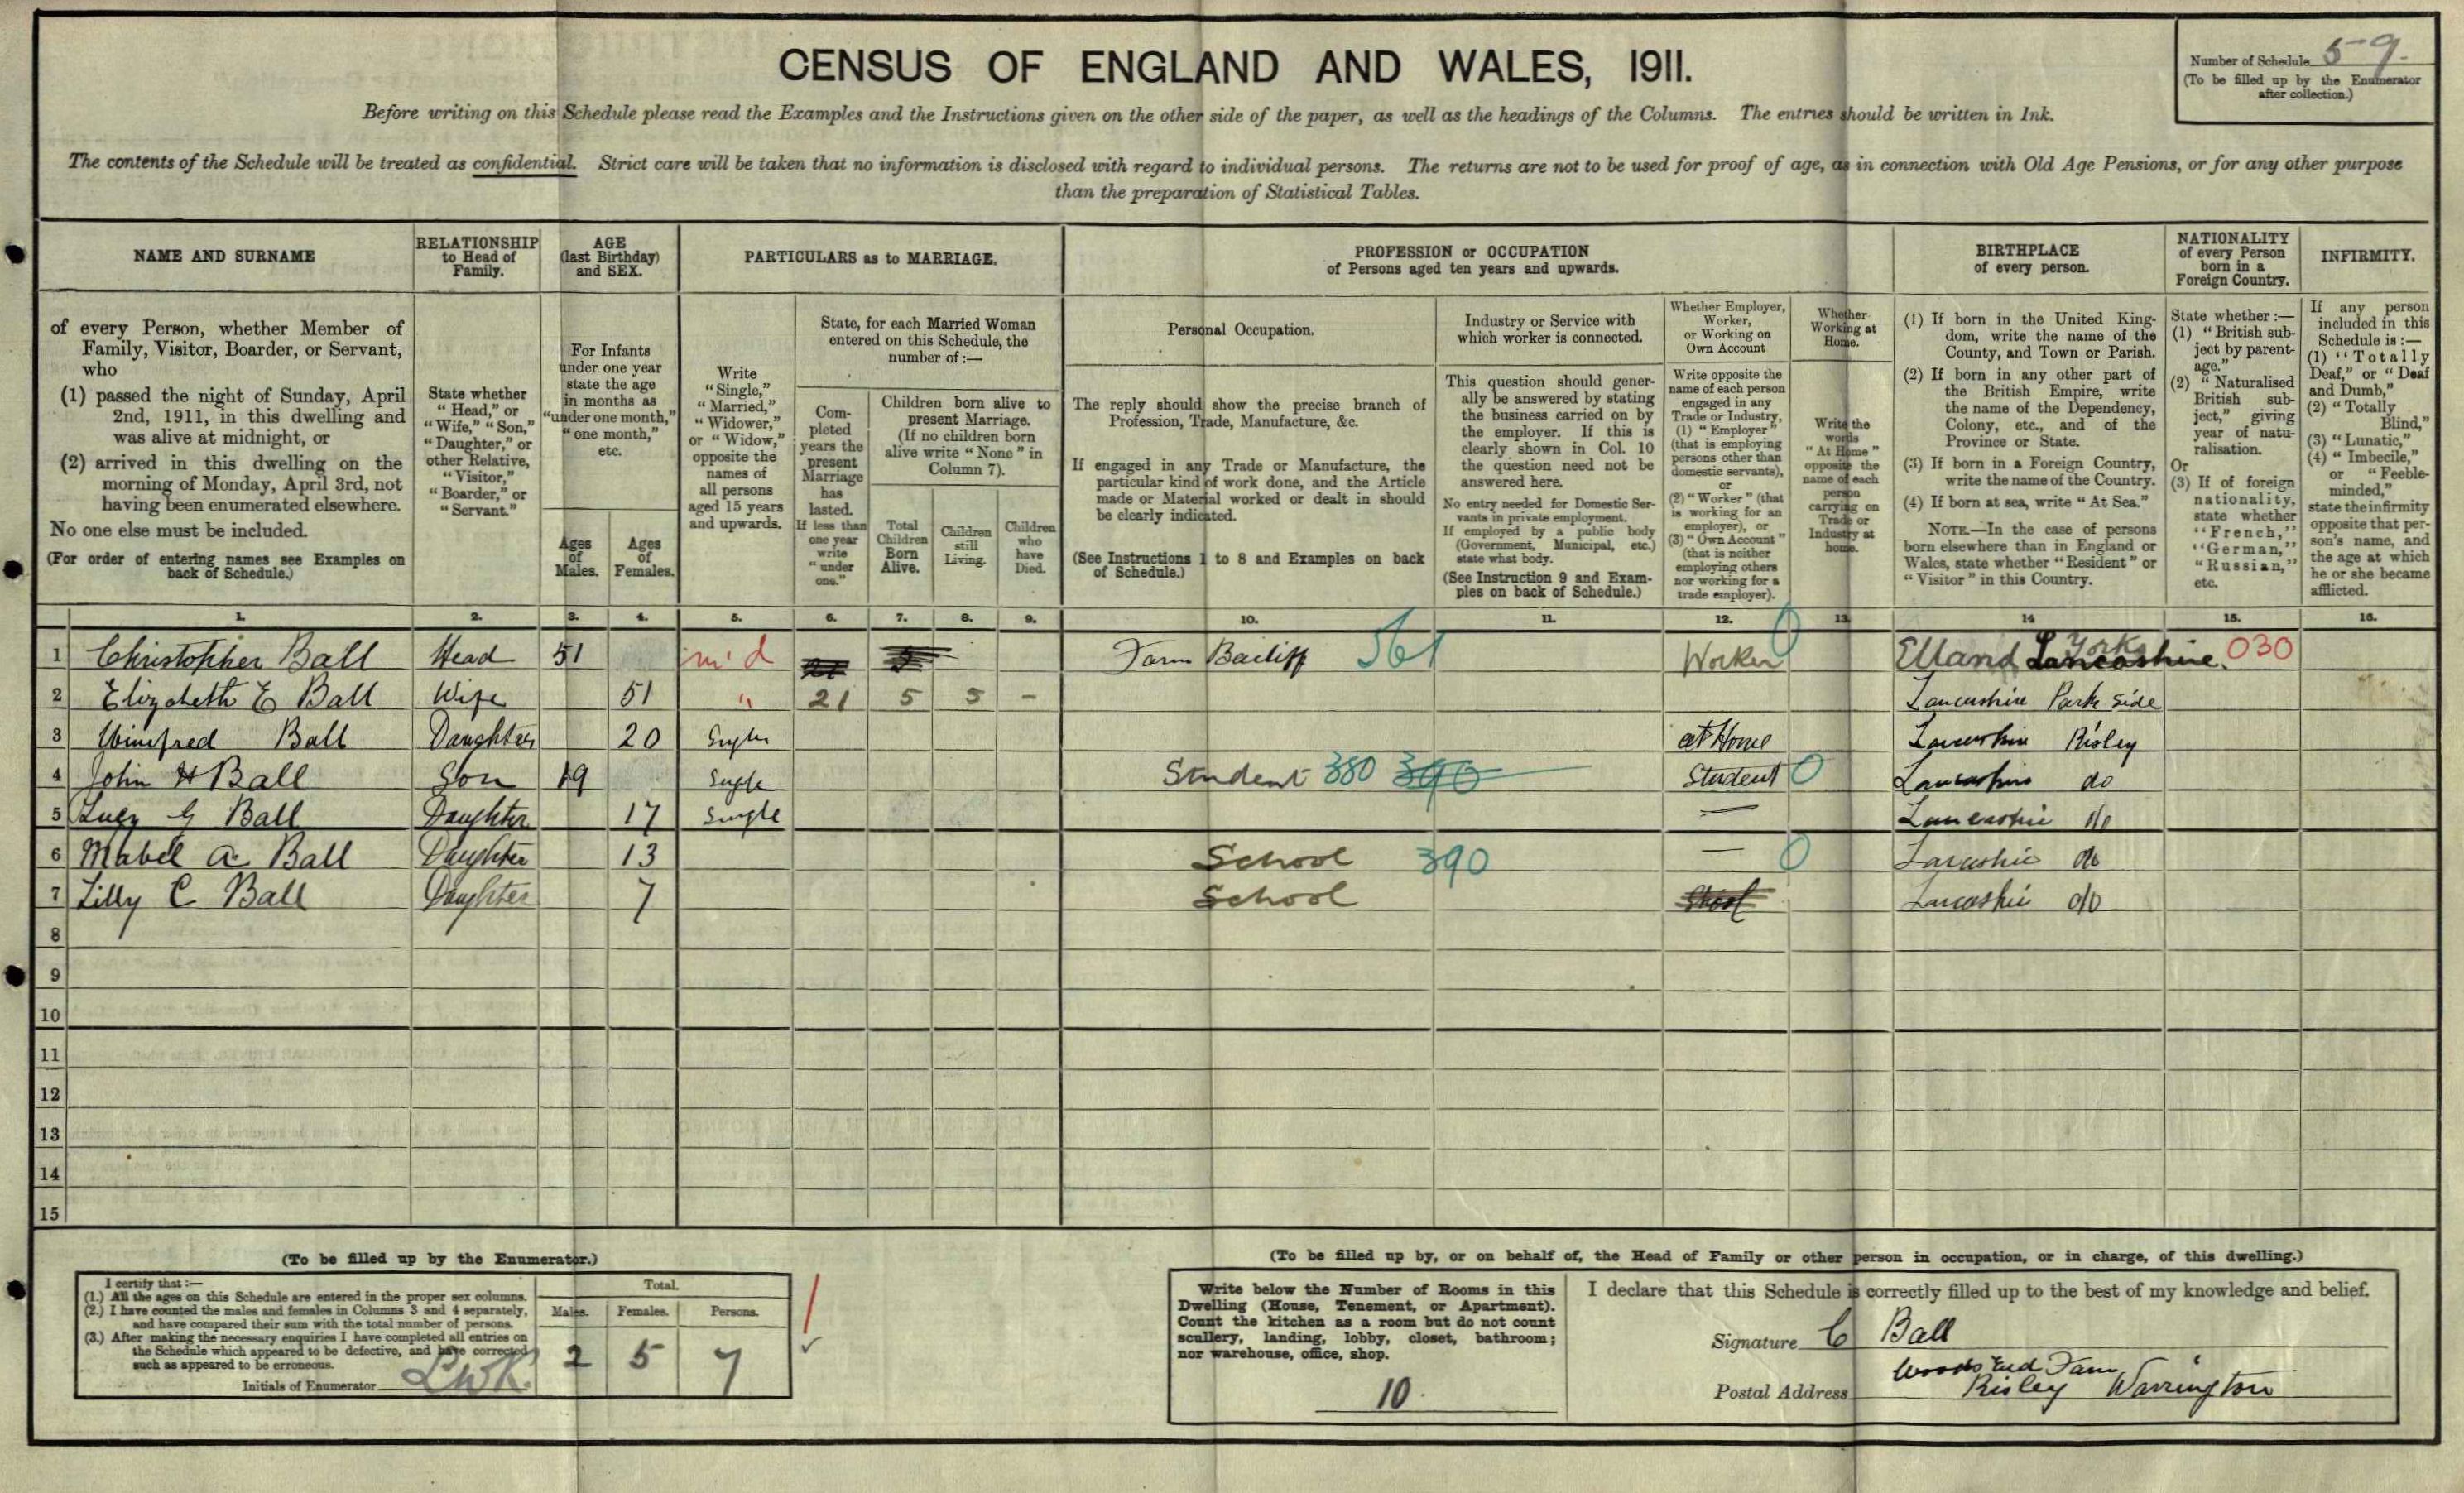 CENSUS OF ENGLAND AND WALES, 1911.
Number of Schedule 59.
(To be filled up by the Enumerator
after collection.)
Before writing on this Schedule please read the Examples and the Instructions given on the other side of the paper, as well as the headings of the Columns. The entries should be written in Ink.
The contents of the Schedule will be treated as confidential. Strict care will be taken that no information is disclosed with regard to individual persons. The returns are not to be used for proof of age, as in connection with Old Age Pensions, or for any other purpose
than the preparation of Statistical Tables.
NAME AND SURNAME
of every Person, whether Member of
Family, Visitor, Boarder, or Servant,
who
(1) passed the night of Sunday, April
2nd, 1911, in this dwelling and
was alive at midnight, or
(2) arrived in this dwelling on the
morning of Monday, April 3rd, not
having been enumerated elsewhere.
No one else must be included.
(For order of entering names see Examples on
back of Schedule.)
RELATIONSHIP
to Head of
Family.
State whether
"Head," or
"Wife," "Son,"
"Daughter," or
other Relative,
"Visitor,"
"Boarder," or
"Servant."
AGE
(last Birthday)
and SEX.
For Infants
under one year
state the age
in months as
"under one month,"
"one month,"
etc.
Ages
of
Males.
Ages
of
Females.
PARTICULARS as to MARRIAGE.
Write
"Single,"
"Married,"
"Widower,"
or "Widow,"
opposite the
names of
all persons
aged 15 years
and upwards.
State, for each Married Woman
entered on this Schedule, the
number of :—
Com-
pleted
years the
present
Marriage
has
lasted.
If less than
one year
write
"under
one."
Children born alive to
present Marriage.
(If no children born
alive write "None" in
Column 7).
Total
Children
Born
Alive.
Children
still
Living.
Children
who
have
Died.
PROFESSION or OCCUPATION
of Persons aged ten years and upwards.
Personal Occupation.
The reply should show the precise branch of
Profession, Trade, Manufacture, &c.
If engaged in any Trade or Manufacture, the
particular kind of work done, and the Article
made or Material worked or dealt in should
be clearly indicated.
(See Instructions 1 to 8 and Examples on back
of Schedule.)
Industry or Service with
which worker is connected.
This question should gener-
ally be answered by stating
the business carried on by
the employer. If this is
clearly shown in Col. 10
the question need not be
answered here.
No entry needed for Domestic Ser-
vants in private employment.
If employed by a public body
(Government, Municipal, etc.)
state what body.
(See Instruction 9 and Exam-
ples on back of Schedule.)
Whether Employer,
Worker,
or Working on
Own Account
Write opposite the
name of each person
engaged in any
Trade or Industry,
(1) "Employer"
(that is employing
persons other than
domestic servants),
or
(2) "Worker" (that
is working for an
employer), or
(3) "Own Account"
(that is neither
employing others
nor working for a
trade employer).
Whether
Working at
Home.
Write the
words
"At Home"
opposite the
name of each
person
carrying on
Trade or
Industry at
home.
BIRTHPLACE
of every person.
(1) If born in the United King-
dom, write the name of the
County, and Town or Parish.
(2) If born in any other part of
the British Empire, write
the name of the Dependency,
Colony, etc., and of the
Province or State.
(3) If born in a Foreign Country,
write the name of the Country.
(4) If born at sea, write "At Sea."
NOTE.—In the case of persons
born elsewhere than in England or
Wales, state whether "Resident" or
"Visitor" in this Country.
NATIONALITY
of every Person
born in a
Foreign Country.
State whether :—
(1) "British sub-
ject by parent-
age."
(2) "Naturalised
British sub-
ject," giving
year of natu-
ralisation.
Or
(3) If of foreign
nationality,
state whether
"French,"
"German,"
"Russian,"
etc.
INFIRMITY.
If any person
included in this
Schedule is :—
(1) "Totally
Deaf," or "Deaf
and Dumb,"
(2) "Totally
Blind,"
(3) "Lunatic,"
(4) "Imbecile,"
or "Feeble-
minded,"
state the infirmity
opposite that per-
son's name, and
the age at which
he or she became
afflicted.
1. 2. 3. 4. 5. 6. 7. 8. 9. 10. 11. 12. 13 14 15. 16.
1 Christopher Ball Head 51 m'd Farm Bailiff 561 Worker 0 Elland Yorks Lancashire 030
2 Elizabeth E Ball Wife 51 " 21 5 5 - Lancashire Park Side
3 Winefred Ball Daughter 20 Single at Home Lancashire Risley
4 John H Ball Son 19 Single Student 380 390 Student 0 Lancashire do
5 Lucy G Ball Daughter 17 Single — Lancashire do
6 Mabel A Ball Daughter 13 School 390 — 0 Lancashire do
7 Lilly C Ball Daughter 7 School School Lancashire do
8
9
10
11
12
13
14
15
(To be filled up by the Enumerator.)
I certify that :—
(1.) All the ages on this Schedule are entered in the proper sex columns.
(2.) I have counted the males and females in Columns 3 and 4 separately,
and have compared their sum with the total number of persons.
(3.) After making the necessary enquiries I have completed all entries on
the Schedule which appeared to be defective, and have corrected
such as appeared to be erroneous.
Initials of Enumerator LWK.
Total.
Males. Females. Persons.
2 5 7
(To be filled up by, or on behalf of, the Head of Family or other person in occupation, or in charge, of this dwelling.)
Write below the Number of Rooms in this
Dwelling (House, Tenement, or Apartment).
Count the kitchen as a room but do not count
scullery, landing, lobby, closet, bathroom;
nor warehouse, office, shop.
10.
I declare that this Schedule is correctly filled up to the best of my knowledge and belief.
Signature C Ball
Postal Address Woods End Farm
Risley Warrington